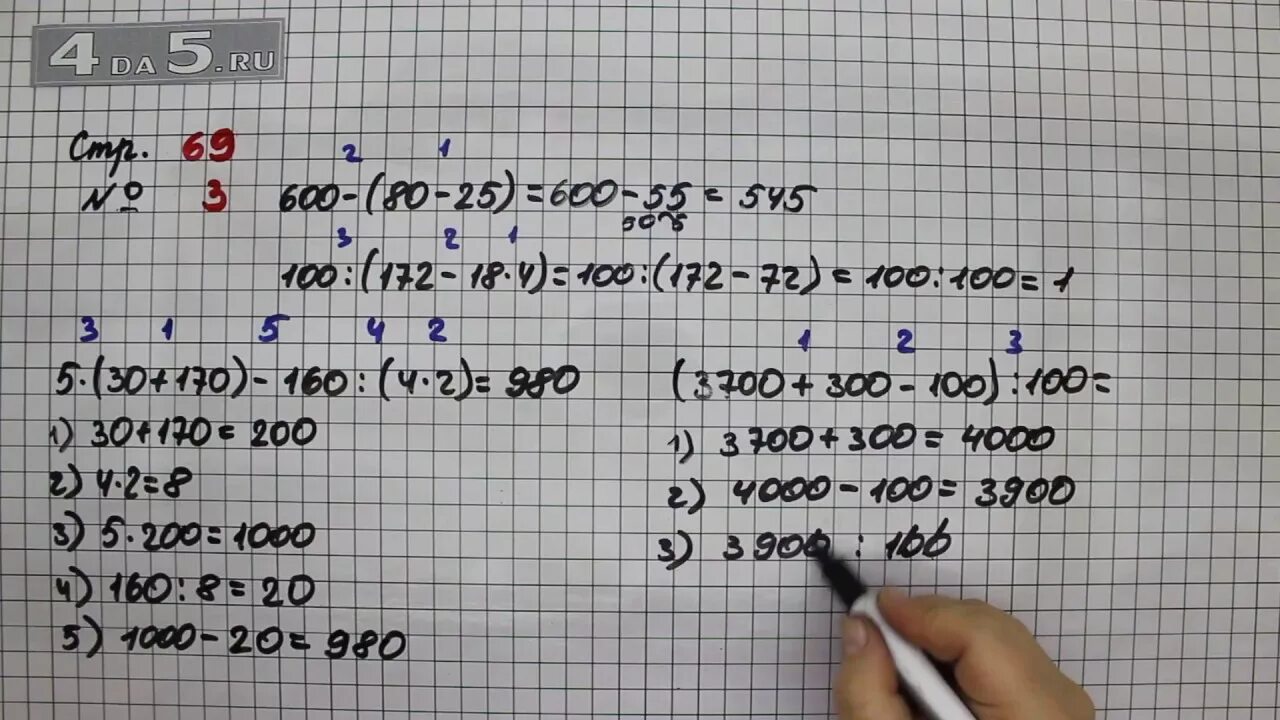 4DA5.RU
Стр. 69
№ 3
2 1
600-(80-25)=600-55=545
50 5
3 2 1
100:(172-18·4)=100:(172-72)=100:100=1
3 1 5 4 2
5·(30+170)-160:(4·2)=980
1) 30+170=200
2) 4·2=8
3) 5·200=1000
4) 160:8=20
5) 1000-20=980
1 2 3
(3700+300-100):100=
1) 3700+300=4000
2) 4000-100=3900
3) 3900:100